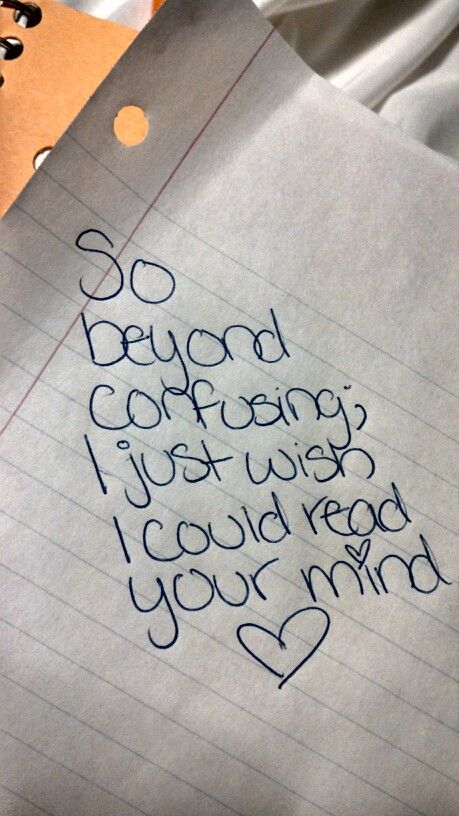 So
beyond
confusing;
I just wish
I could read
your mind